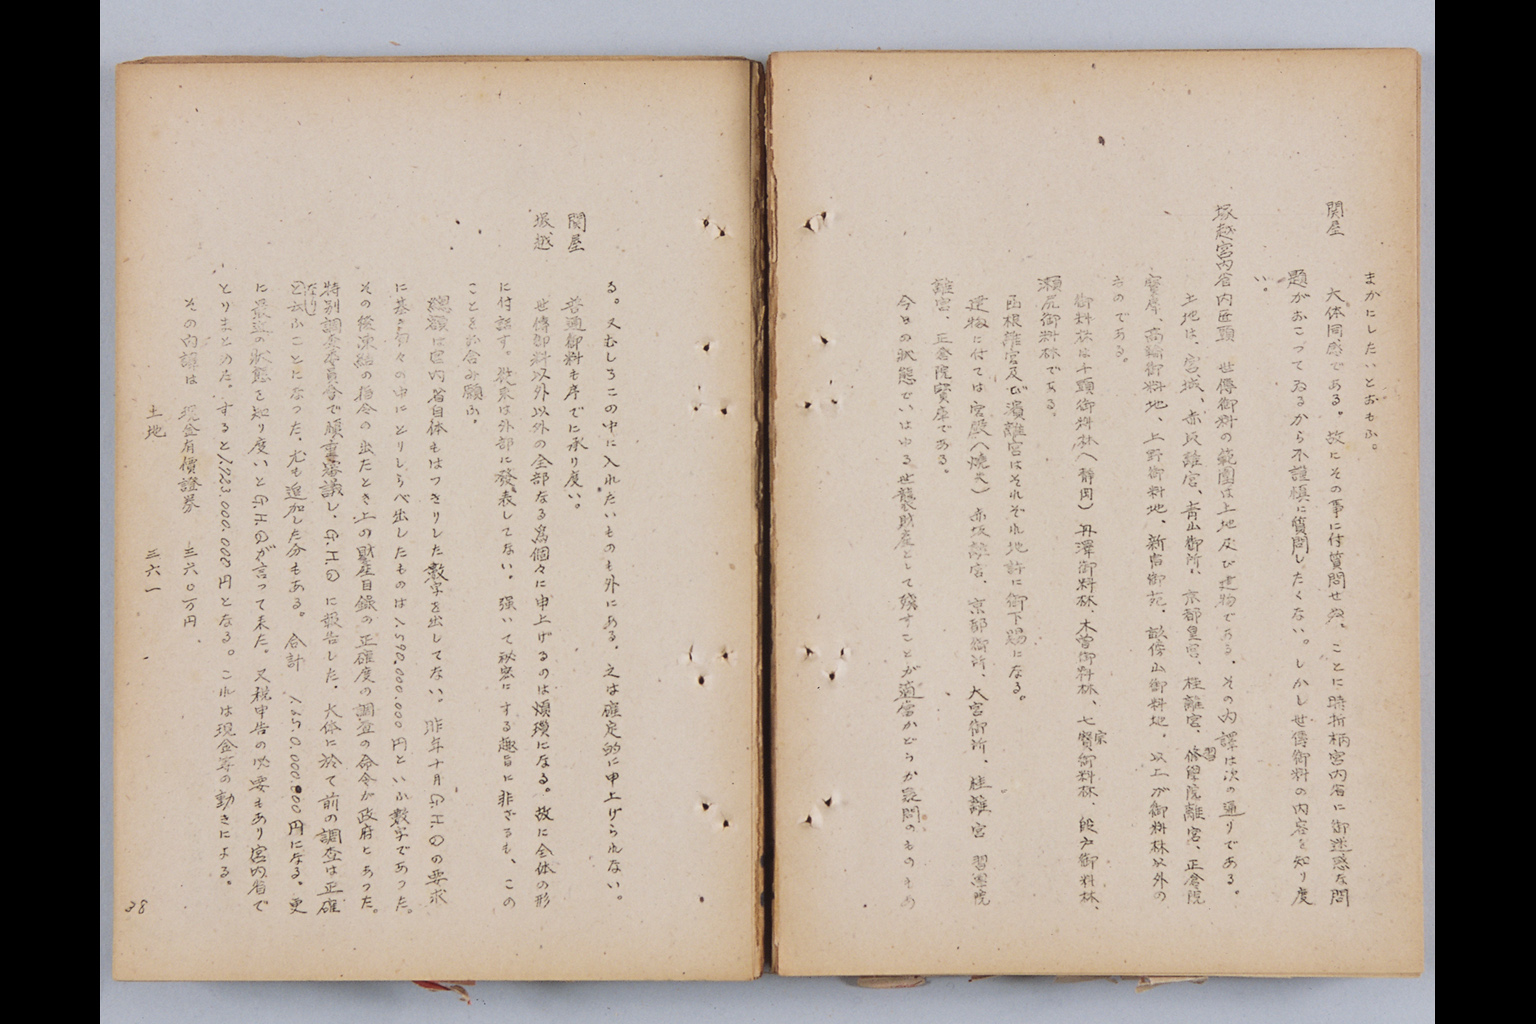 まかにしたいとおもふ。
関屋　大体同感である。故にその事に付質問せぬ、ことに時折柄宮内省に御迷惑な問
題がおこつてゐるから不謹慎に質問したくない。しかし世傳御料の内容を知り度
い。
塚越宮内省内匠頭　世傳御料の範圍は土地及び建物である。その内譯は次の通りである。
土地は、宮城、赤坂離宮、青山御所、京都皇宮、桂離宮、修學院離宮、正倉院
寳庫、高輪御料地、上野御料地、新宿御苑、畝傍山御料地、以上が御料林以外の
ものである。
御料林は千頭御料林(静岡)丹澤御料林、木曽御料林、七宗御料林、段戸御料林、
瀬尻御料林である。
函根離宮及び濱離宮はそれぞれ地許に御下賜になる。
建物に付ては宮殿(燒失)赤坂離宮、京都御所、大宮御所、桂離宮　習學院
離宮、正倉院寳庫である。
今日の状態でいはゆる世襲財産として残すことが適當かどうか疑問のものもあ
る。又むしろこの中に入れたいものも外にある。之は確定的に申上げられない。
関屋　普通御料も序でに承り度い。
塚越　世傳御料以外以外の全部なる爲個々に申上げるのは煩瑣になる。故に全体の形
に付話す。従来は外部に發表してない。强いて秘密にする趣旨に非ざるも、この
ことをお含み願ふ。
總額は宮内省自体もはつきりした數字を出してない。昨年十月G.H.Qの要求
に基き匆々の中にとりしらべ出したものは1,590,000,000円といふ數字であつた。
その後凍結の指令の出たとき上の財産目録の正確度の調査の命令が政府にあつた。
特別調査委員會で愼重審議し、G.H.Qに報告した。大体に於て前の調査は正確
なりと云ふことになつた。尤も追加した分もある。合計　1,650,000,000円になる。更
に最近の状態を知り度いとG.H.Qが言つて来た。又税申告の必要もあり宮内省で
とりまとめた。すると1,223,000,000円となる。これは現金等の動きによる。
その内譯は　現金有價證券　三六〇万円、
土地　三六一
38